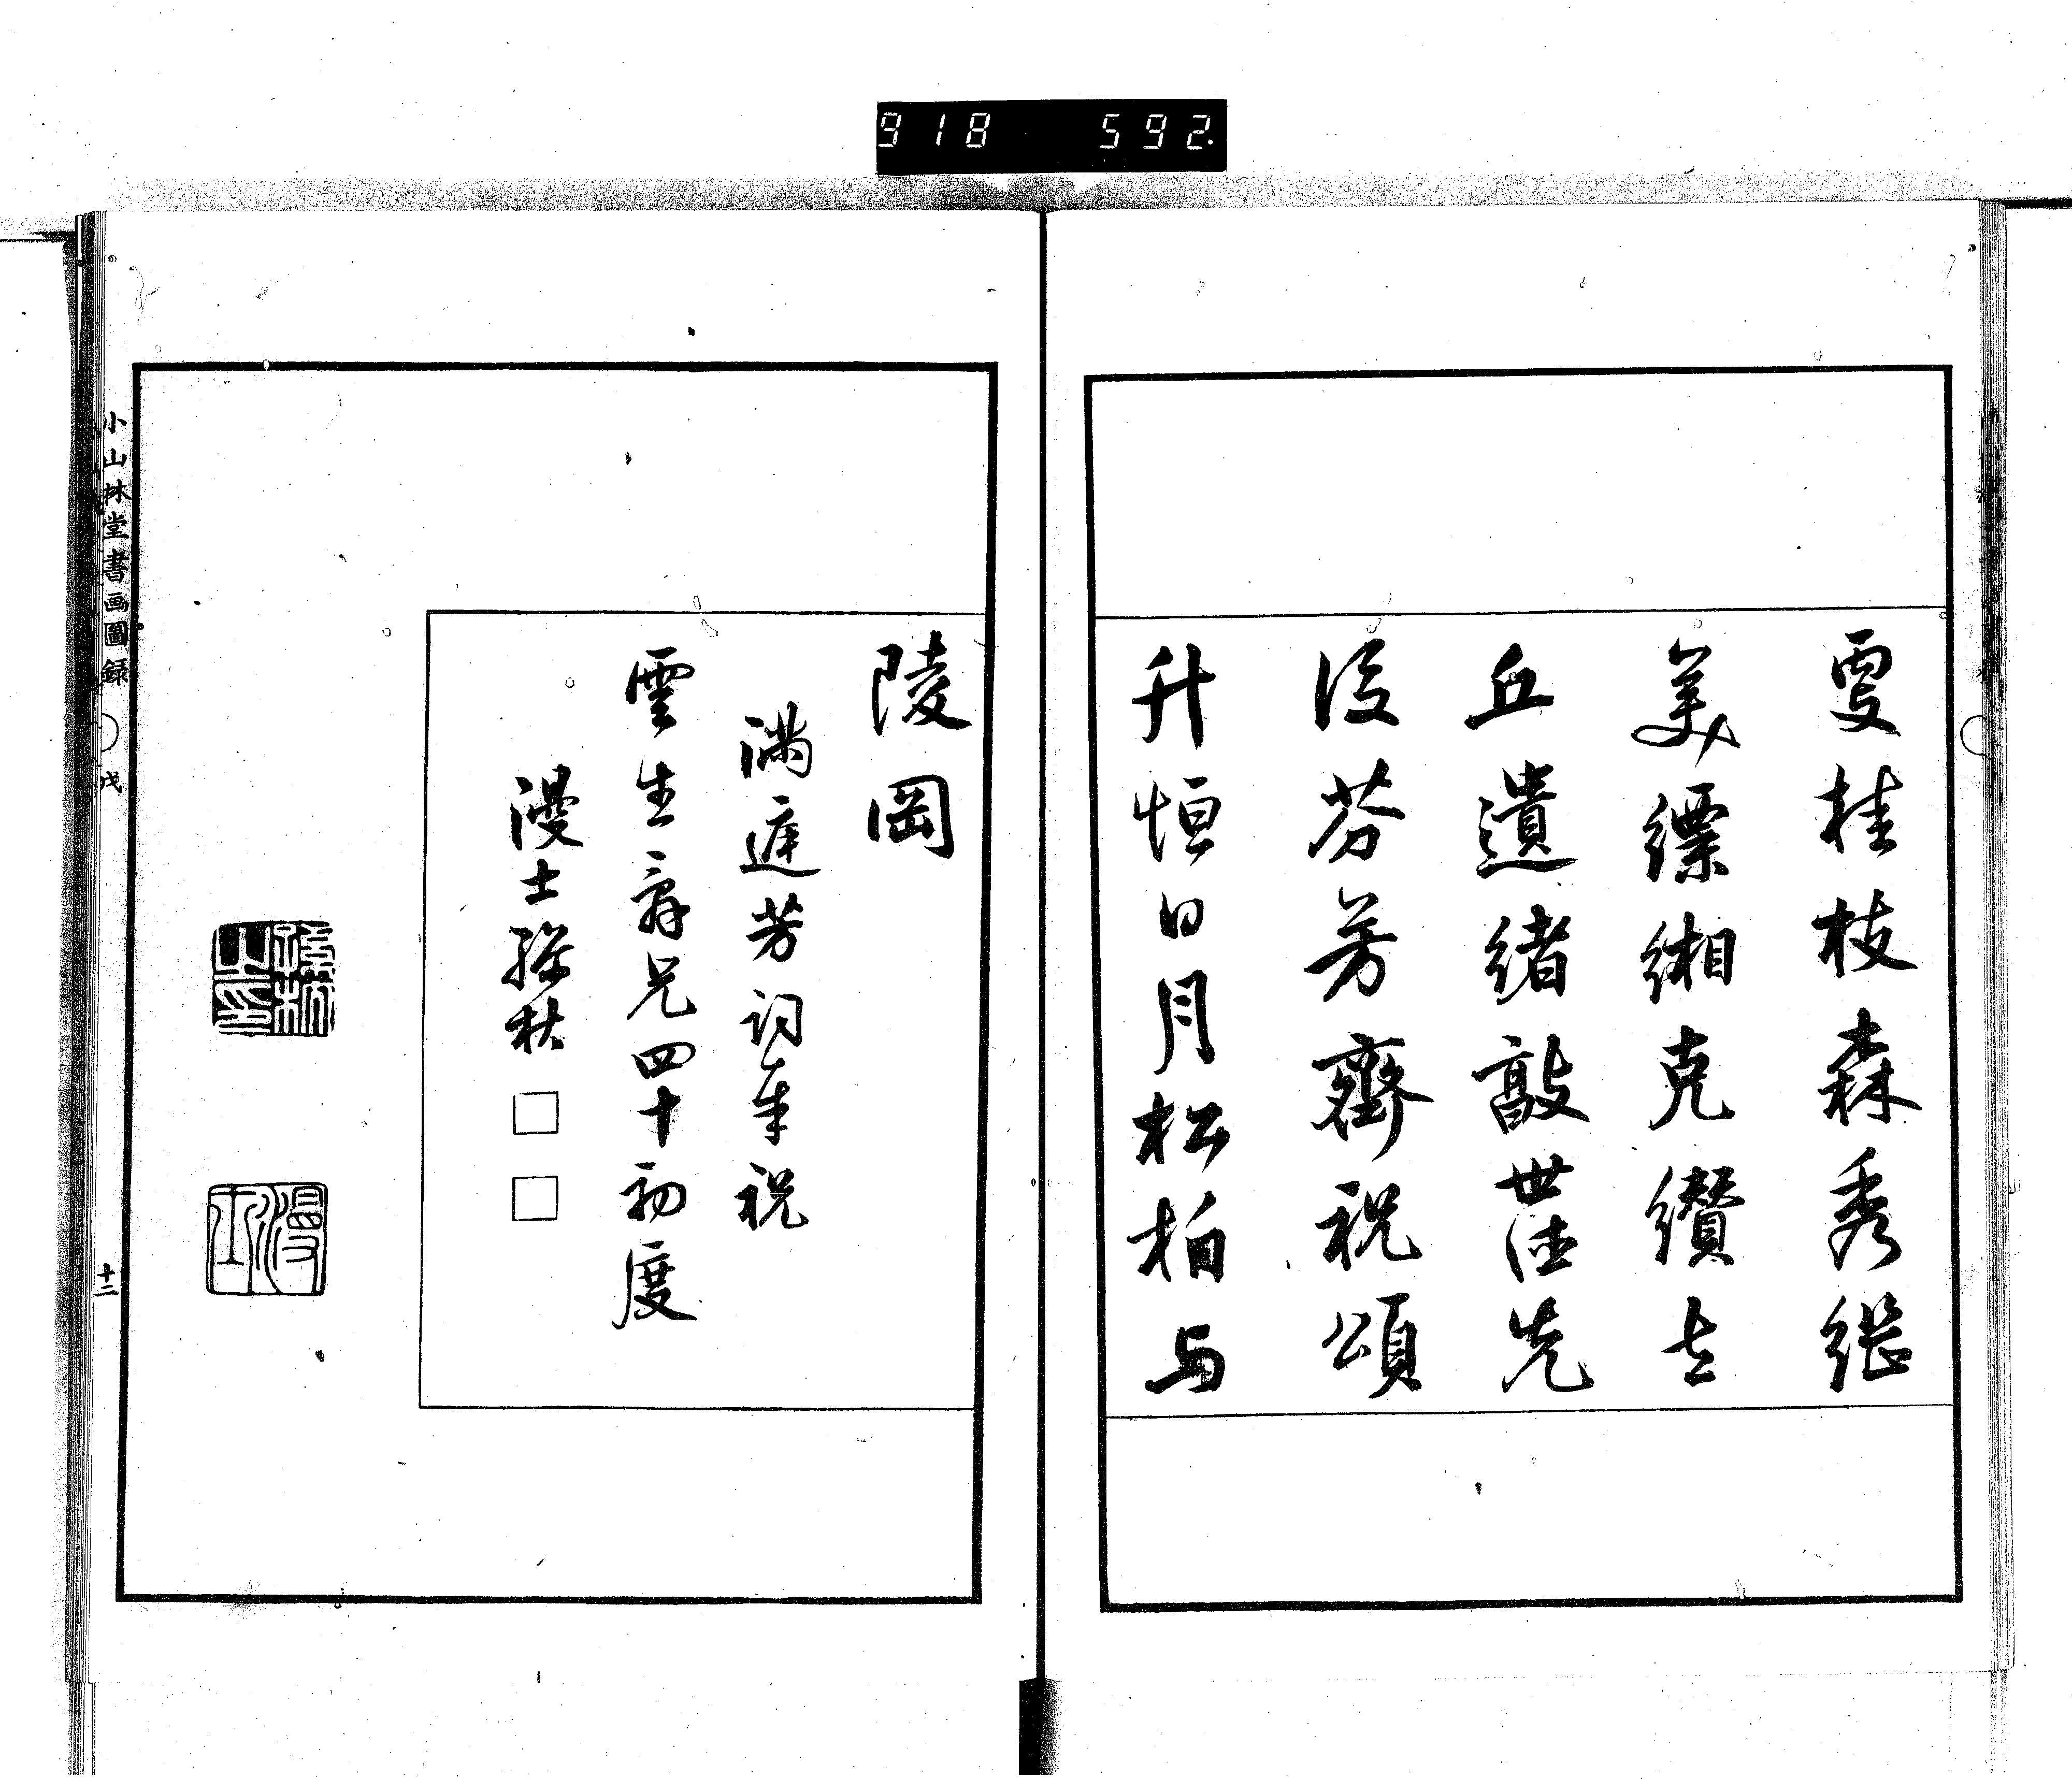 918 592
桂枝森秀繼
美縹緗克纘
丘遺緒敲世澤先
後芬芳齊祝頌
升恒日月松柏与
陵岡
滿庭芳詞奉祝
雲生兄四十初度
漫士
漫士
小山林堂書画圖録
戊
十二